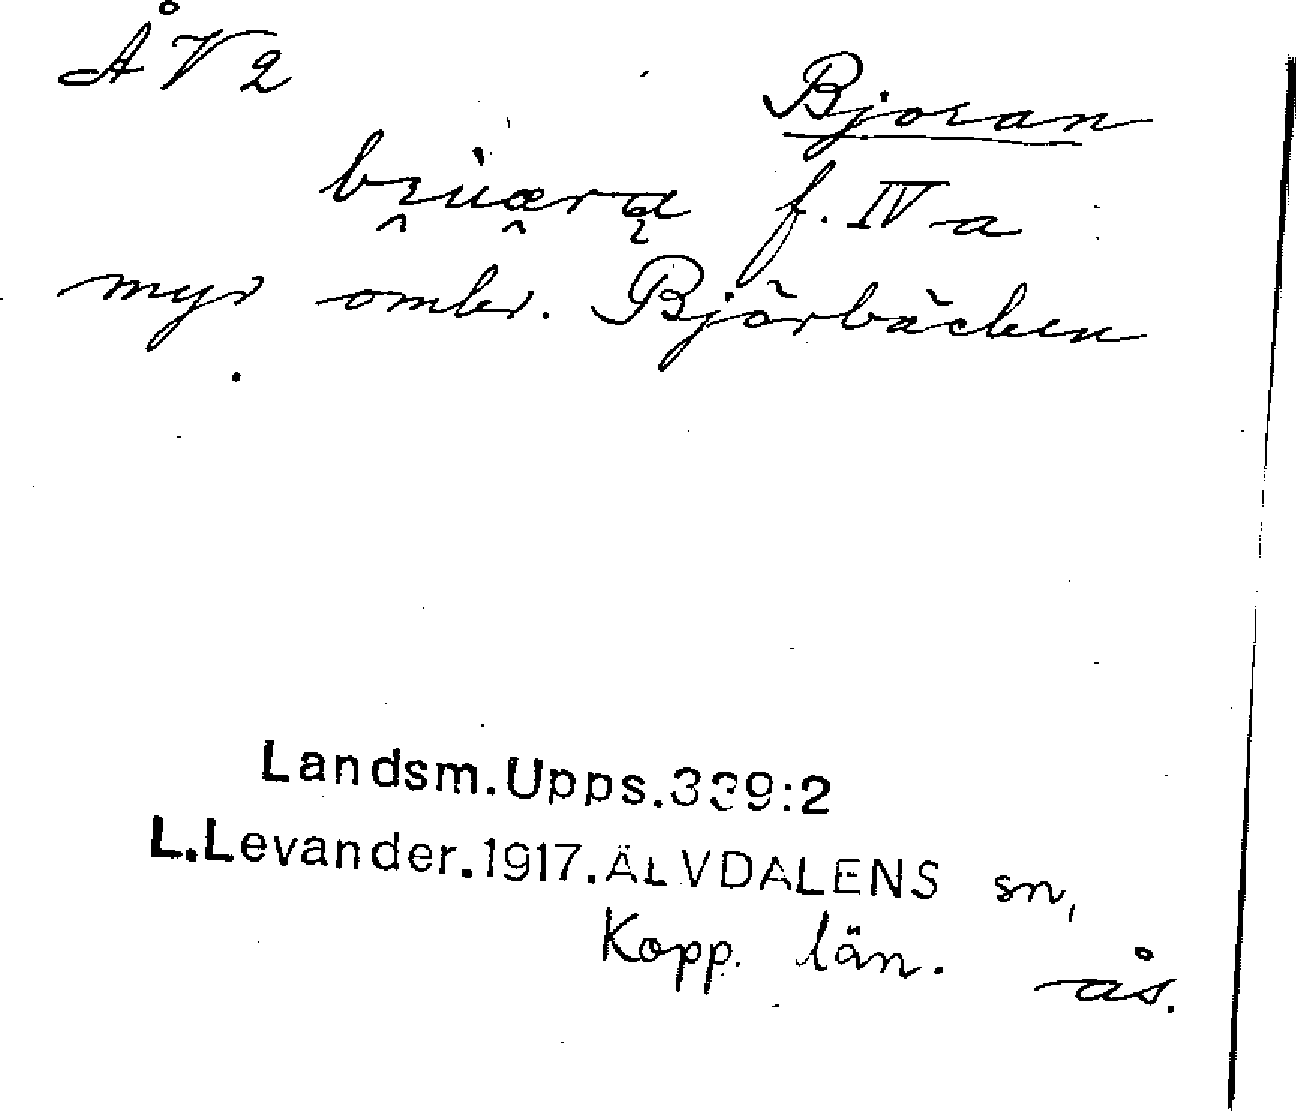 ÅV2
Bjoran
f. IV a
myr omkr. Björbäcken
Landsm.Upps.339:2
L.Levander.1917.ÄLVDALENS sn,
Kopp. län.
ås.